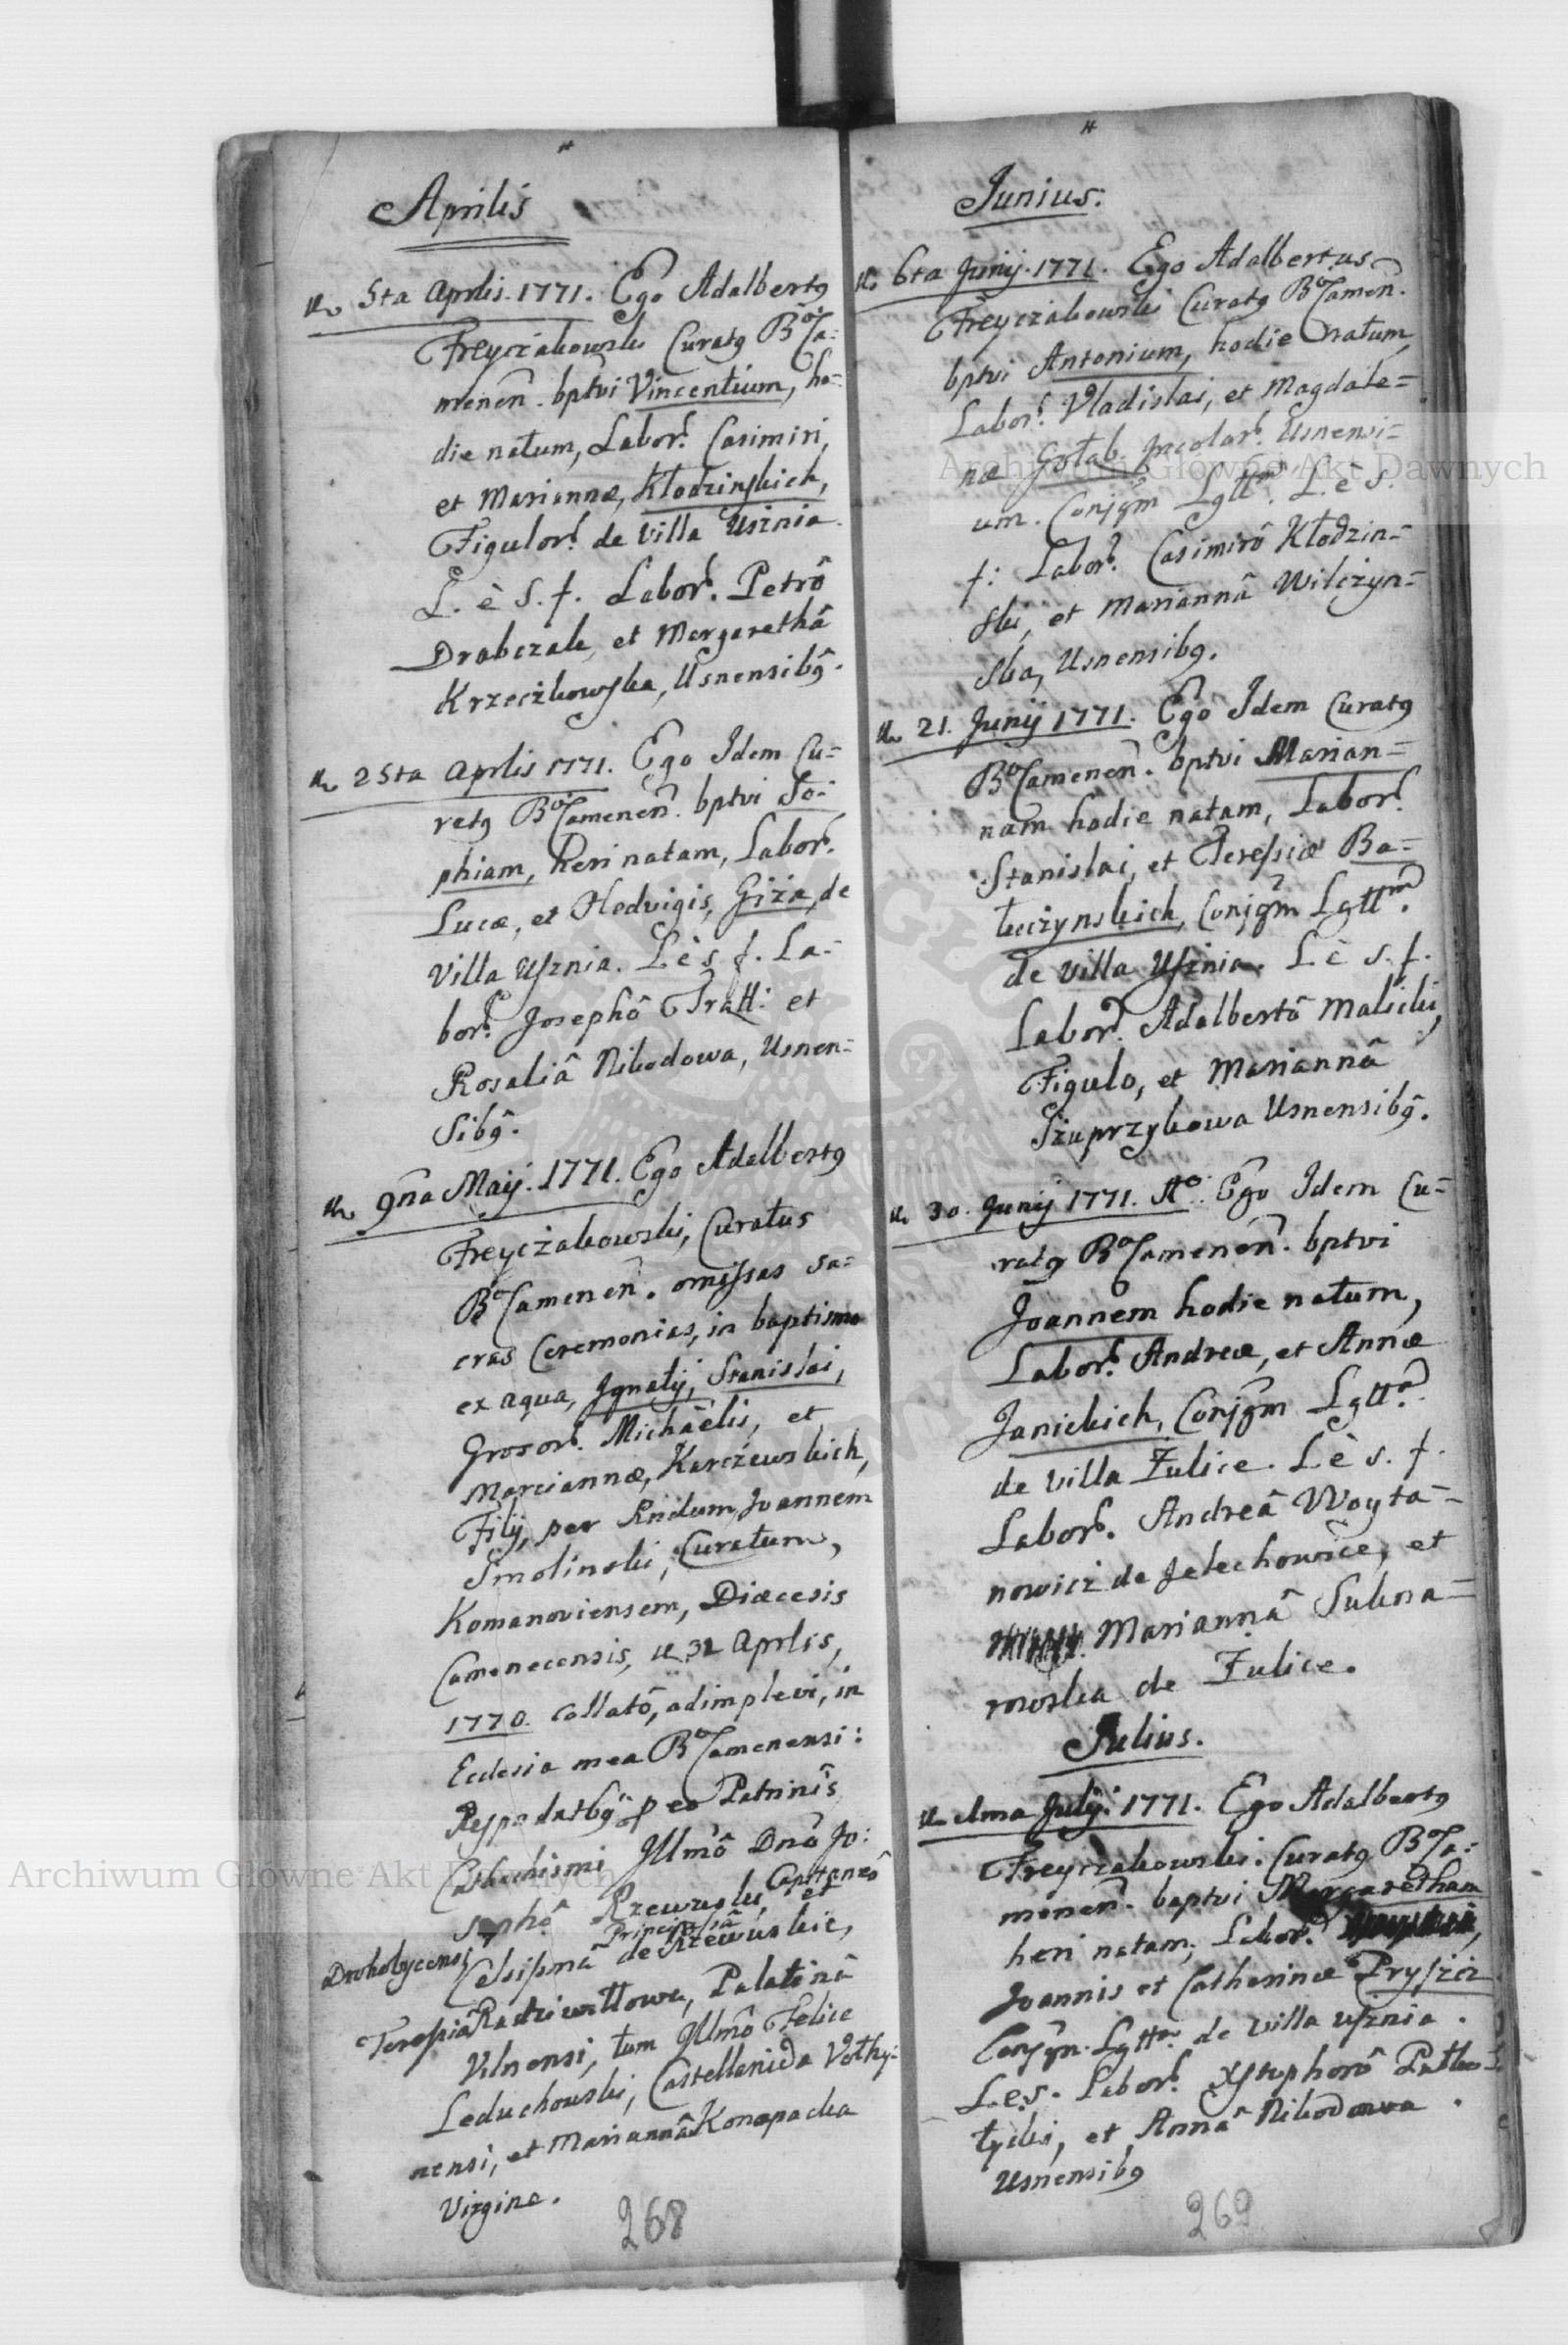 Aprilis
5ta Aprlis. 1771. Ego Adalbertꝯ
Freyczakowski Curatꝯ BoCa-
menen. bptvi Vincentium, ho-
die natum, Labor. Casimiri,
et Mariannæ, Kłodzinskich,
Figulor. de Villa Usznia.
L. è S. f. Labor. Petrô
Drabczak, et Margarethâ
Krzeczkowska, Usnensibꝯ.
25ta Aprlis 1771. Ego Idem Cu-
ratꝯ BoCamenen. bptvi So-
phiam, heri natam, Labor.
Lucæ, et Hedvigis, Giża, de
Villa Usznia. L è s f. La-
bor. Josephô Tratt: et
Rosaliâ Nikodowa, Usnen-
sibꝯ.
9na Maij. 1771. Ego Adalbertꝯ
Freyczakowski, Curatus
BoCamenen. omissas sa-
cras Ceremonias, in baptismo
ex aqua, Ignatij, Stanislai,
Grosor. Michaëlis, et
Marciannæ, Karczewskich,
Filij, per Rndum Joannem
Smolinski, Curatum,
Komanoviensem, Diæcesis
Camenecensis, Aprlis,
1770. collatô, adimplevi, in
Ecclesia mea BoCamenensi:
Patrinis
Cathechismi Illmô Dnô Jo:
sephô Rzewuski, Capitaneô et
Drohobycensi Principissâ
Celsissmâ de Rzewuskie,
Teressiâ Radziwiłłowa, Palatinâ
Vilnensi, tum Illmô Felice
Leduchowski, Castellanida Vołhy-
nensi, et Mariannâ Konopacka
Virgine.
268
Junius.
6ta Junij. 1771. Ego Adalbertus
Freyczakowski Curatꝯ BoCamen.
bptvi Antonium, hodie natum,
Labor. Vladislai, et Magdale-
næ Gołąb. Incolar. Usnensi-
um. Conjgm Lgttm. L. è S.
f: Labor. Casimirô Kłodzin-
ski, et Mariannâ Wilczyn-
ska, Usnensibꝯ.
21. Junij 1771. Ego Idem Curatꝯ
BoCamenen. bptvi Marian-
nam hodie natam, Labor.
Stanislai, et Teressiæ Ba-
łuczynskich, Conjgm Lgttm.
de Villa Usznia. L è s. f.
Labor. Adalbertô Malicki,
Figulo, et Mariannâ
Szuprzykowa Usnensibꝯ.
30. Junij 1771. Ao. Ego Idem Cu-
ratꝯ BoCamenen. bptvi
Joannem hodie natum,
Labor. Andreæ, et Annæ
Janickich, Conjgm Lgttm.
de Villa Żulice. L è s. f.
Labor. Andreâ Woyta-
nowicz de Jelechowice, et
Mariannâ Sukna-
rowska de Żulice.
Julius.
1ma Julij. 1771. Ego Adalbertꝯ
Freyczakowski. Curatꝯ BoCa-
menen. baptvi Margaretham
heri natam, Labor.
Joannis et Catherinæ Pryszcz
Conjgm. Lgttm. de Villa Usznia.
L. e. s. Labor. Xstophorô
et Annâ Nikodowa.
Usnensibꝯ
269
Archiwum Główne Akt Dawnych
Archiwum Główne Akt Dawnych